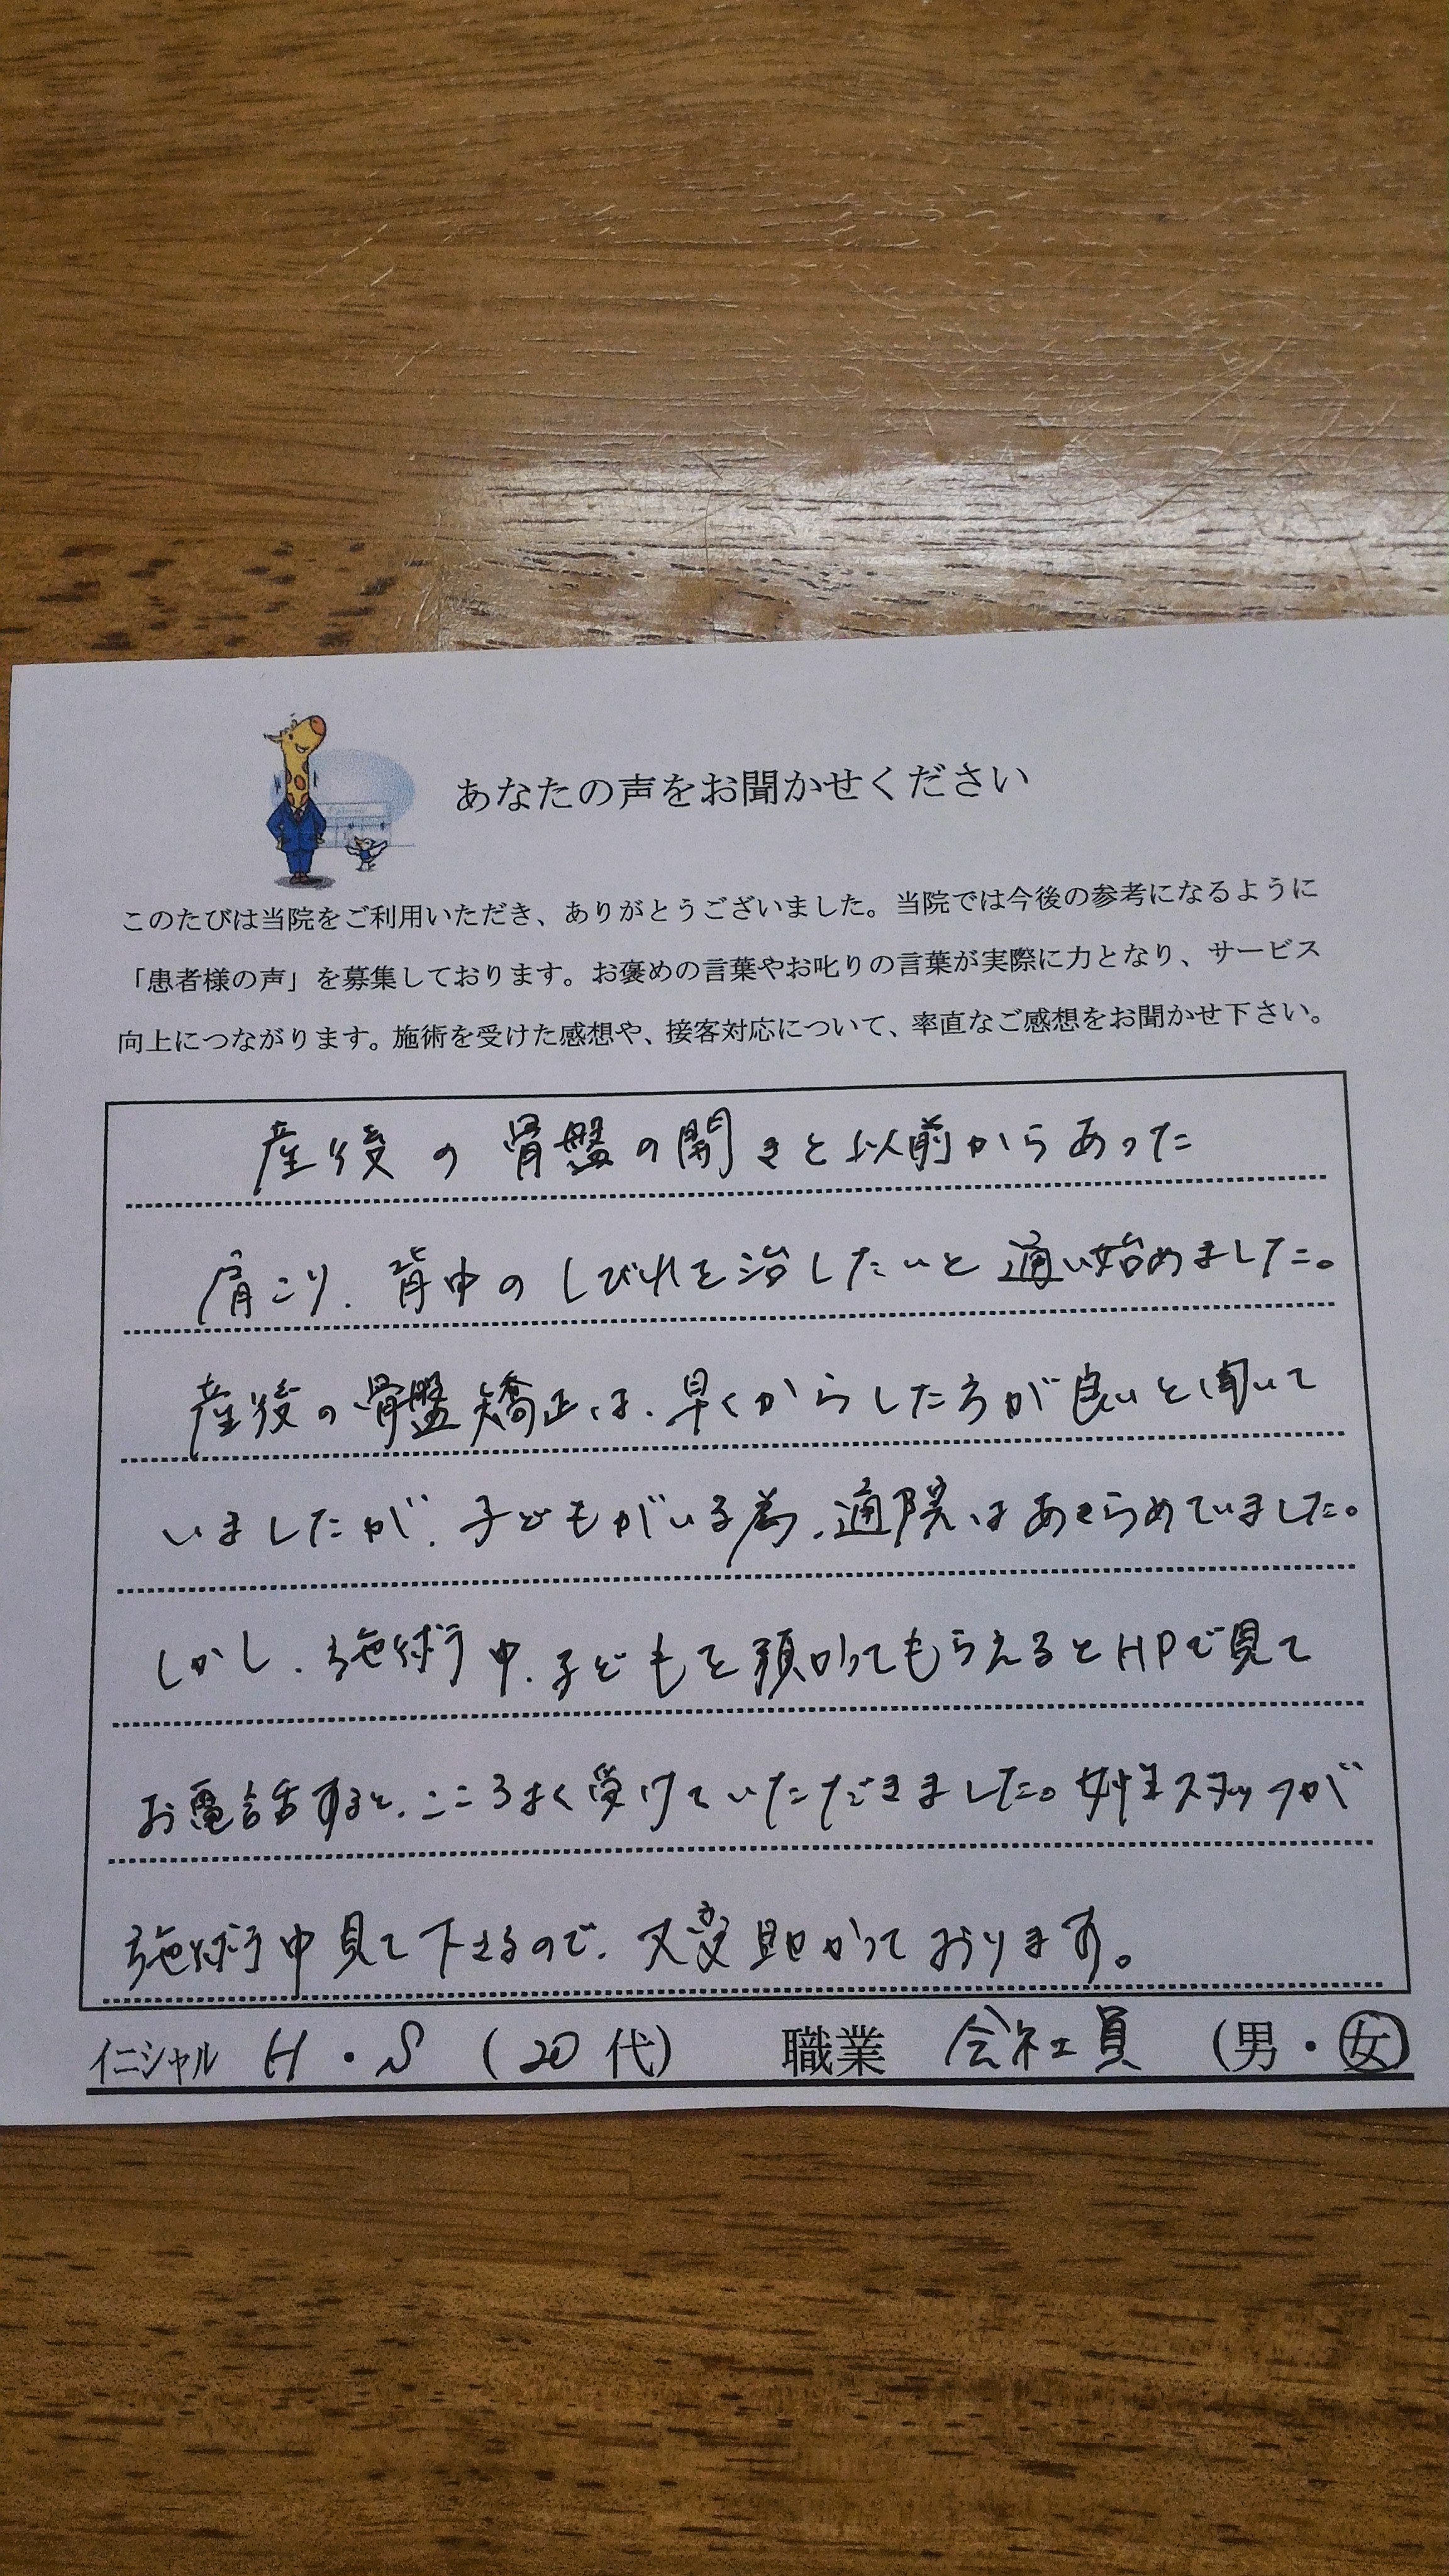 あなたの声をお聞かせください
このたびは当院をご利用いただき、ありがとうございました。当院では今後の参考になるように
「患者様の声」を募集しております。お褒めの言葉やお叱りの言葉が実際に力となり、サービス
向上につながります。施術を受けた感想や、接客対応について、率直なご感想をお聞かせ下さい。
産後の骨盤の開きと以前からあった
肩こり、背中のしびれを治したいと通い始めました。
産後の骨盤矯正は、早くからした方が良いと聞いて
いましたが、子どもがいる為、通院はあきらめていました。
しかし、施術中、子どもを預かってもらえるとHPで見て
お電話すると、こころよく受けていただきました。女性スタッフが
施術中見て下さるので、大変助かっております。
イニシャル H・S (20代) 職業 会社員 (男・女)